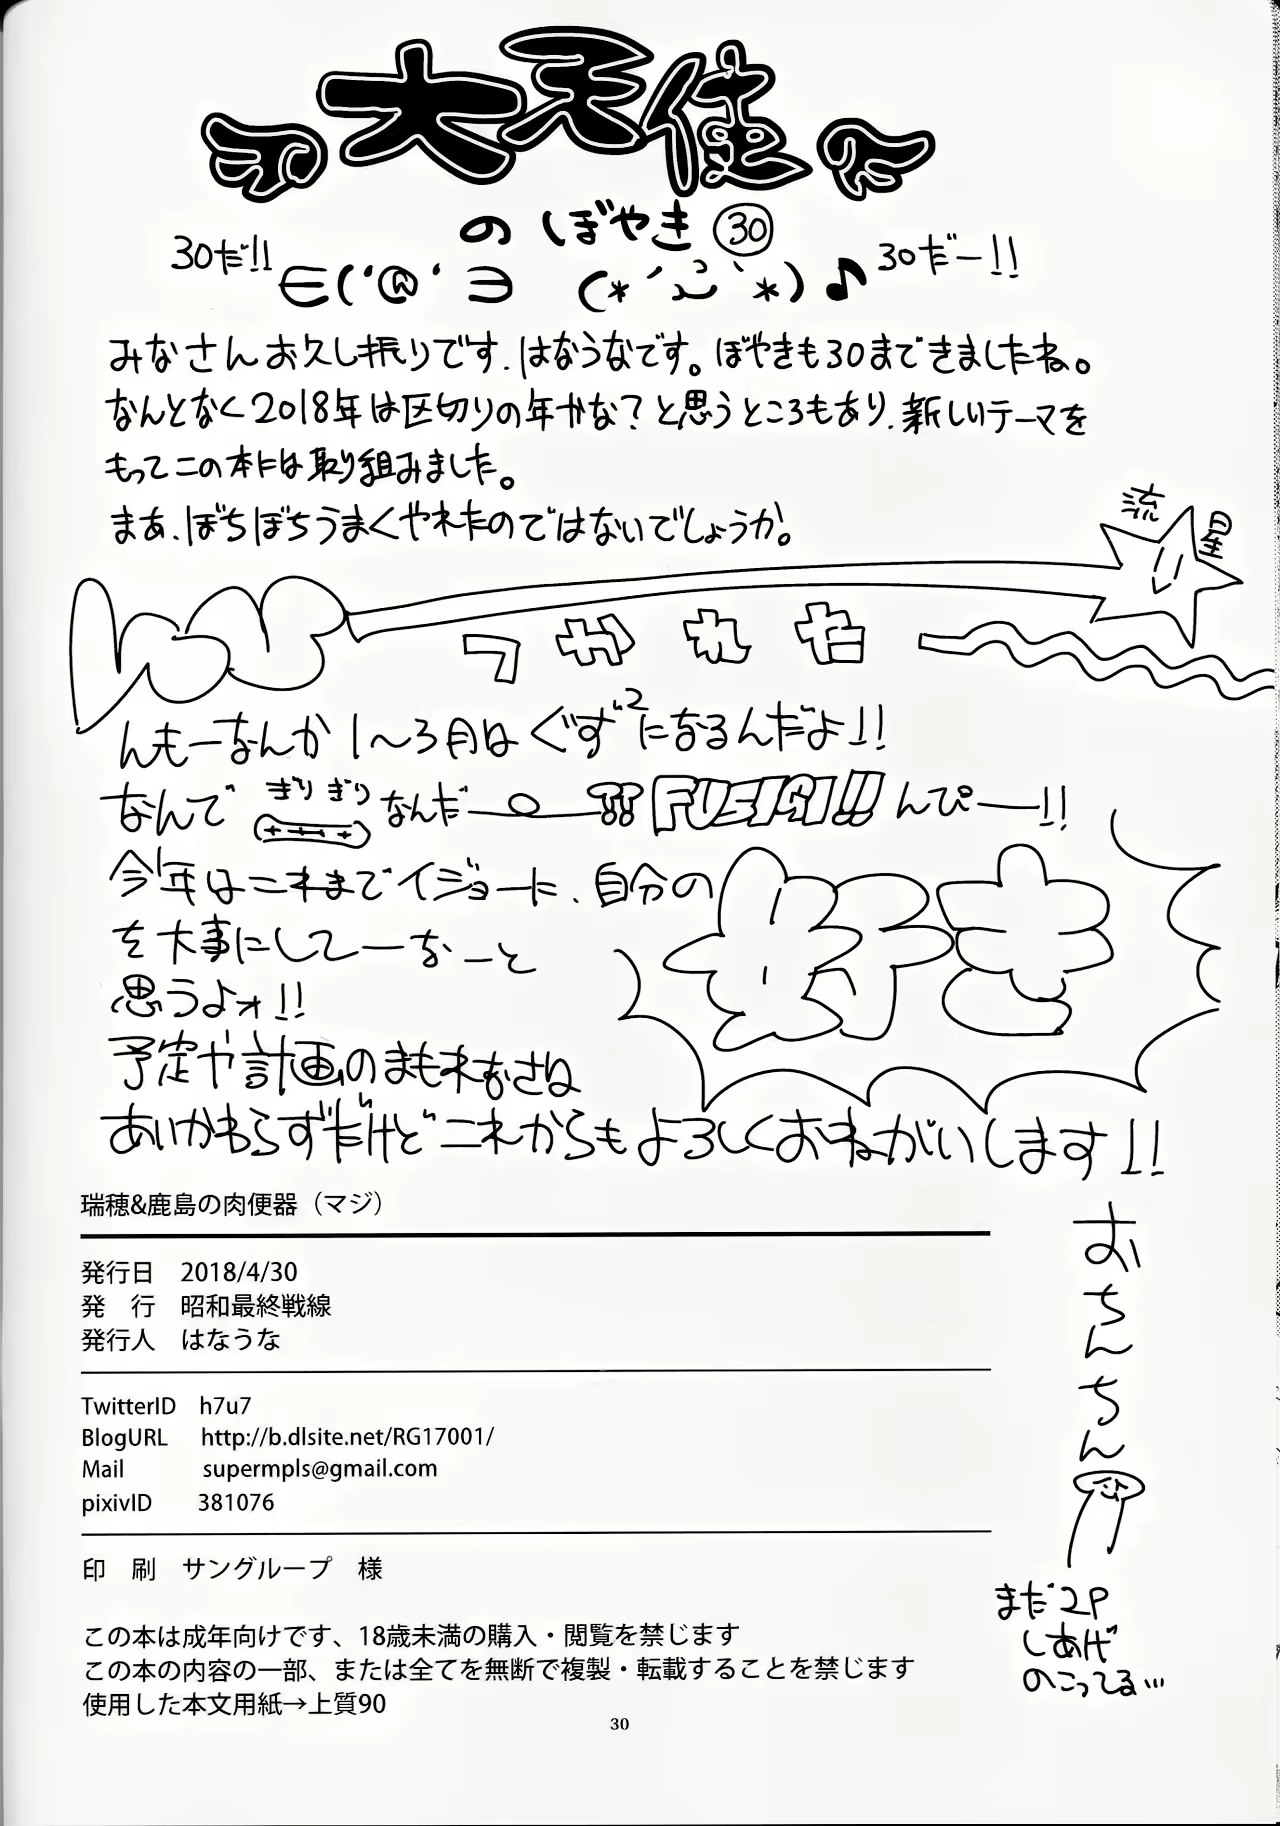 大天使
のぼやき㉚
30だ!!
30だー!!
∈('@' ∋
みなさんお久し振りです、はなうなです。ぼやきも30まできましたね。
なんとなく2018年は区切りの年かな?と思うところもあり、新しいテーマを
もってこの本には取り組みました。
まあ、ぼちぼちうまくやれたのではないでしょうか。
流星
つかれた
んもーなんか1〜3月はぐずぐ²になるんだよ!!
なんでぎりぎりなんだー??FUSION!!んぴー!!
今年はこれまでイジョーに、自分の
好き
を大事にしてーなーと
思うよォ!!
予定や計画のまもれなさは
あいかわらずだけどこれからもよろしくおねがいします!!
瑞穂&鹿島の肉便器（マジ）
発行日 2018/4/30
発 行 昭和最終戦線
発行人 はなうな
TwitterID h7u7
BlogURL http://b.dlsite.net/RG17001/
Mail supermpls@gmail.com
pixivID 381076
印 刷 サングループ 様
この本は成年向けです、18歳未満の購入・閲覧を禁じます
この本の内容の一部、または全てを無断で複製・転載することを禁じます
使用した本文用紙→上質90
おちんちん
まだ2P
しあげ
のこってる…
30